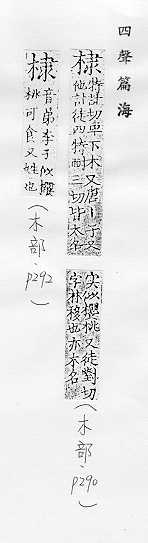 四聲篇海
棣特計切車下木又唐丨子又
他計徒四特耐三切皆木名
实似櫻桃又徒對切
字林移也亦木名
(木部、p290)
棣音弟李子似櫻
桃可食又姓也
(木部、p292)